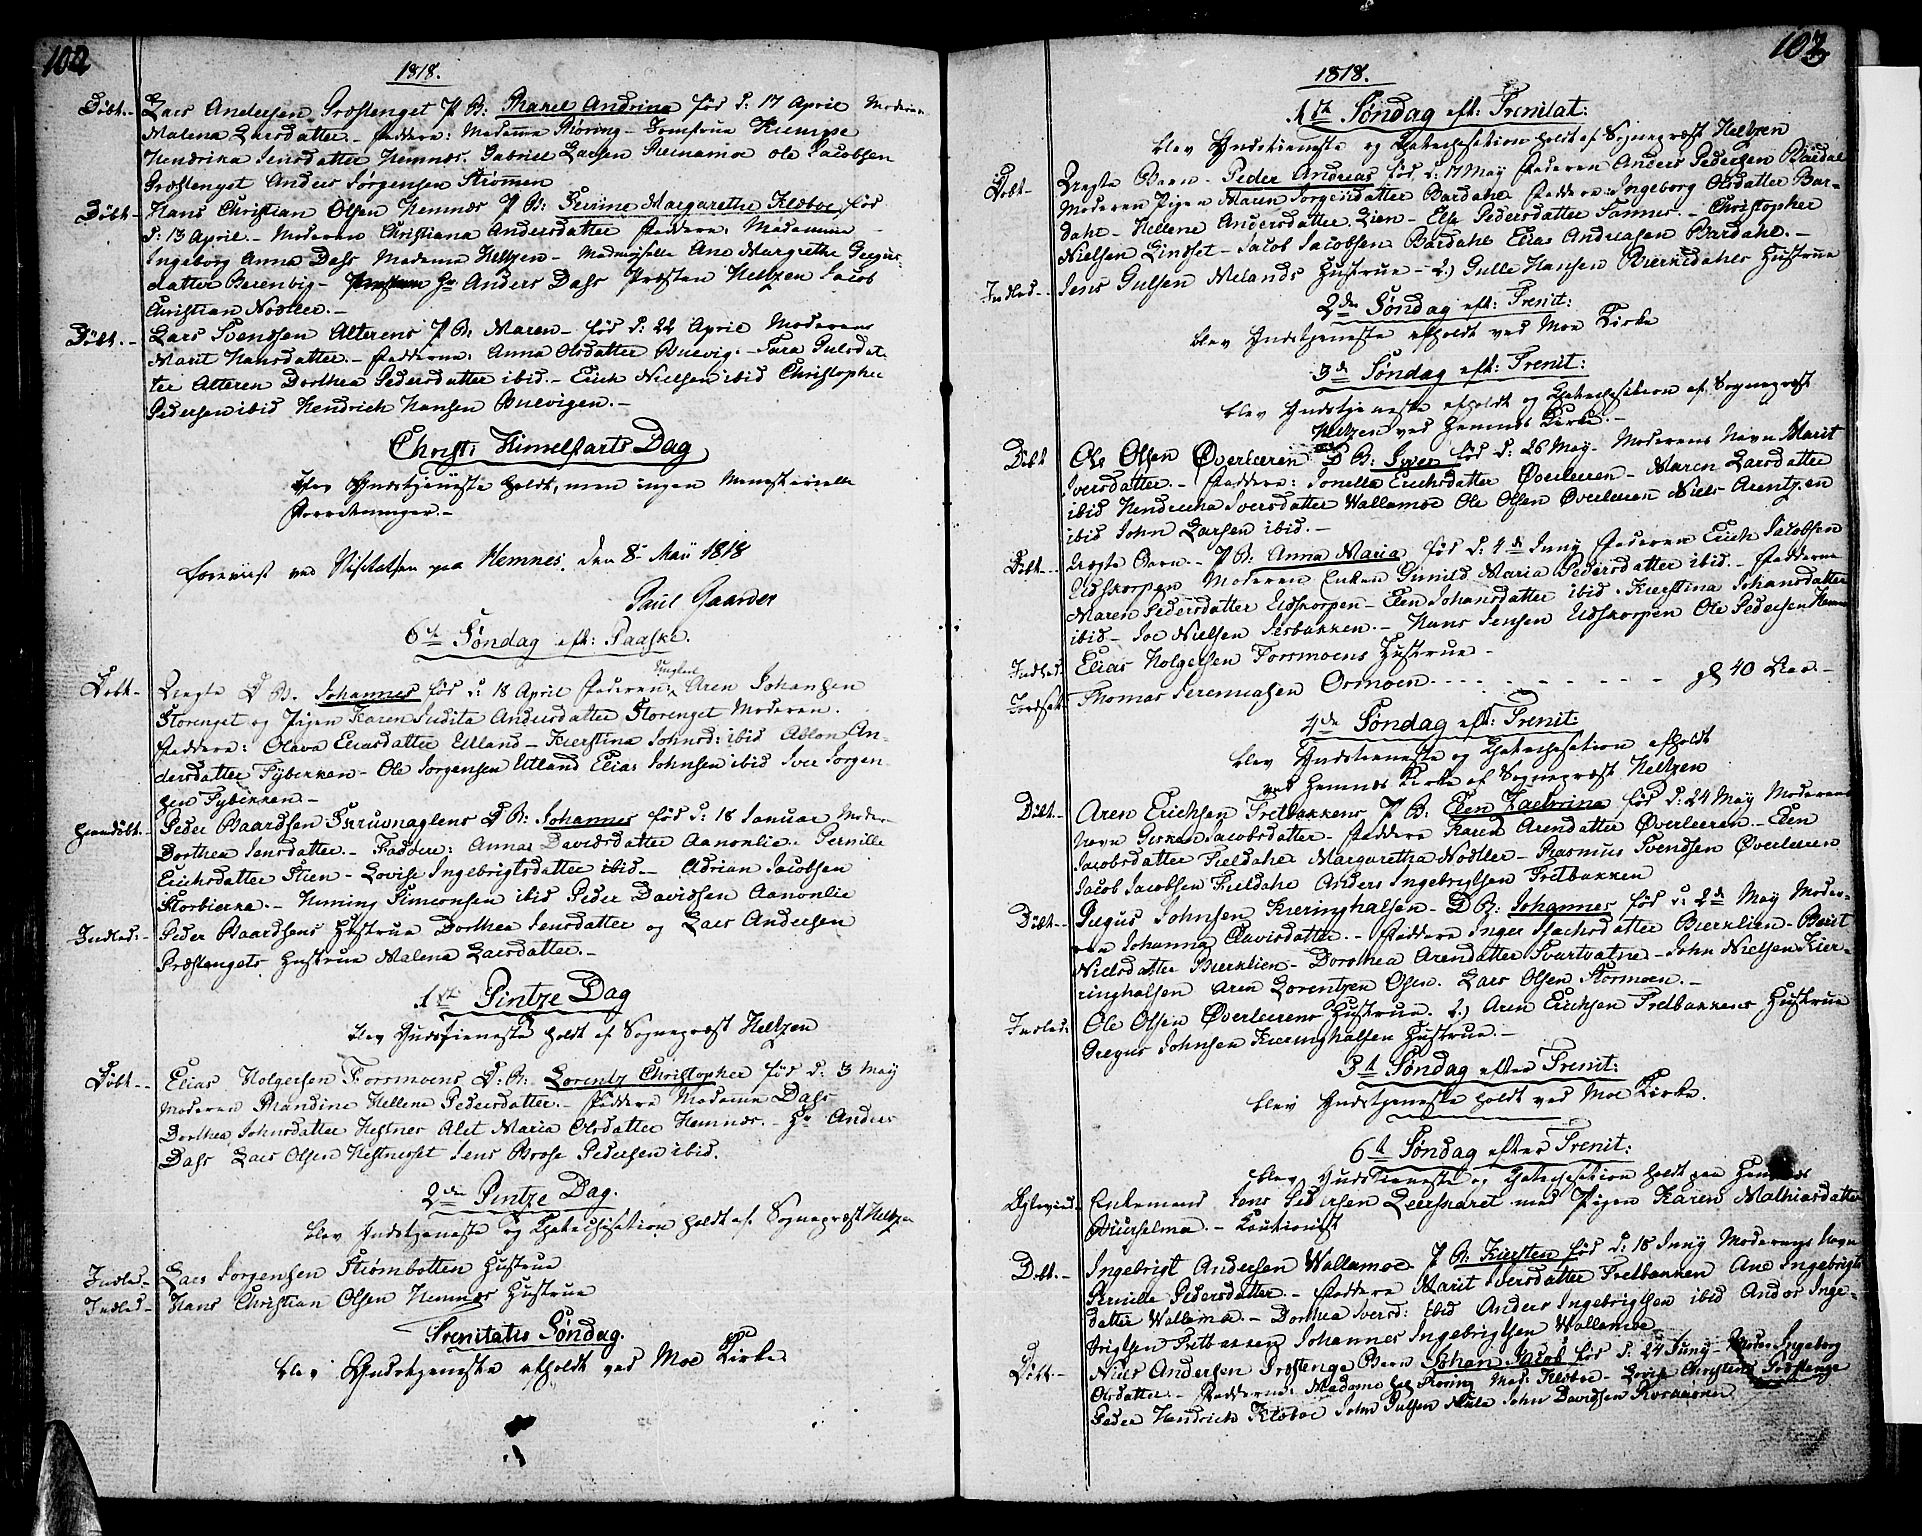 102
1818.
Döbt. – Lars Andersen Præstenget P B: Maren Andrina fød d: 17 April Moderen
Malena Larsdatter. – Faddere: Madame Røring – Jomfrue Klempe
Hendrina Jensdatter Hemnæs. Gabriel Larsen Reinamoe Ole Jacobsen
Præstenget Anders Jørgensen Strømmen
Döbt – Hans Christian Olsen Hemnæs P B: Serine Margarethe Klæboe, fød
d: 13 April. – Moderen Christiana Andersdatter Faddere: Madamme
Ingeborg Anna Dass Madamme Heltzen – Madmoiselle Ane Margrethe Gregus-
datter Barenbig – Hr Anders Dass Præsten Heltzen Jacob
Christian Nodller. –
Döbt. – Lars Svendsen Alterens P B: Maren – fød d: 22 April Moderens
Marit Hansdatter. – Fadderne: Anna Olsdatter Buevig. – Sara Pulsdat-
ter Alteren Dorthea Pedersdatter ibid. – Erich Nielsen ibid Christopher
Pedersen ibid Hendrich Hansen Buevigen. –
Christi Himelfarts Dag
blev Gudstjeneste holdt, men ingen Ministerielle
Forretninger. –
foreviist ved Visitatsen paa Hemnes, den 8 Maii 1818
Paul Gaarder
6te Søndag eft: Paaske.
Döbt – Uegte D B. Johannes fød d: 18 April Faderen: Ungkarl Aren Johansen
Storenget og Pigen Karen Judita Andersdatter Storenget Moderen.
Faddere: Olava Eliasdatter Utland – Kierstina Johnsd: ibid Adlon An-
dersdatter Fybekken – Ole Jørgensen Utland Elias Johnsen ibid Iver Jørgen-
sen Fybekken. –
Hiemdöbt. – Peder Baardsen Skruvnaglens D B: Johannes fød d: 18 Januar Moder
Dorthea Jensdatter. – Faddere: Anna Davidsdatter Aanonlie. Pernille
Erichsdatter Stien – Lovise Ingebrigtsdatter ibid. – Adrian Jacobsen
Storbierka. – Heming Simeonsen ibid Peder Davidsen Aanonlie
Indled: – Peder Baardsens Hustrue Dorthea Jensdatter og Lars Andersen
Præstengets Hustrue Malena Larsdatter. –
1ste Pintze Dag
blev Gudstieneste holdt af Sognepræst Heltzen
Döbt – – Elias Holgersen Forsmoens D: B: Lorentz Christopher fød d: 3 May
Moderen Randine Hellene Pedersdatter. – Faddere Madame Dass
Dorthea Johnsdatter Hestnes Alet Maria Olsdatter Hemnæs. – Hr Anders
Dass Lars Olsen Hestneset Jens Brose Pedersen ibid.
2den Pintze Dag.
blev Gudstjeneste og Chatechisation holdt af Sognepræst Heltzen
Indled – Lars Jørgensen Strømbotten Hustrue
Indled – Hans Christian Olsen Hemnæs Hustrue
Trenitatis Søndag.
blev Gudstjeneste afholdt ved Moe Kirke
103
1818.
1ste Søndag eft: Trenitat:
blev Gudstieneste og Chatechesation holdt af Sognepræst Heltzen
Döbt – Uegte Barn – Peder Andreas fød d: 17 May Faderen Anders Pedersen Bardal
Moderen Pigen Maren Jørgensdatter Bardahl Faddere: Ingeborg Olsdatter Bar-
dahl – Hellene Andersdatter Lien – Else Pedersdatter Sannes. – Christopher
Nielsen Lindset – Jacob Jacobsen Bardahl Elias Andreasen Bardahl. –
Indled – Jens Gulsen Melands Hustrue – 2.) Gulle Hansen Bierkedahls Hustrue
2den Søndag eft: Trenit:
blev Gudstjeneste afholdt ved Moe Kirke
3de Søndag eft: Trenit:
blev Gudstjeneste afholdt og Chatechesation af Sognepræst
Heltzen ved Hemnæs Kirke. –
Döbt Ole Olsen Øverleeren D B: Iver fød d: 26 May. Moderens Navn Marit
Iversdatter. – Faddere: Jonella Erichsdatter Øverleeren – Maren Larsdatter
ibid Hendricha Iversdatter Wallamoe Ole Olsen Øverleeren Niels Arentzen
ibid John Larsen ibid. –
Döbt. – Uegte Barn – P B: Anna Maria fød d: 4de Juny Faderen Erich Jacobsen
Udskorpen Moderen Enken Gunild Maria Pedersdatter ibid. – Fadderne
Maren Pedersdatter Udskorpen – Elen Johansdatter ibid. Kierstina Johansdatter
ibid – Joe Nielsen Jesbakken. – Hans Jensen Udskorpen Ole Pedersen Hemnæs
Indled Elias Holgersen Forsmoens Hustrue –
Jordfæst Thomas Jeremiasen Ormoen – – – – – – – – – – gl 40 Aar –
4de Søndag eft: Trenit:
blev Gudstieneste og Chatechesation afholdt
ved Hemnæs Kirke af Sognepræst Heltzen
Döbt – Aren Erichsen Fretbakkens P B: Elen Zachrina fød d: 24 May Moderens
Navn Gisken Jacobsdatter – Faddere Karen Arendatter Øverleeren – Elen
Jacobsdatter Fieldahl Margaretha Nodller – Rasmus Svendsen Øverleeren
Jacob Jacobsen Fieldahl Anders Ingebrigtsen Fretbakken
Döbt. – Gregus Johnsen Kieringhalsen – D B: Johannes fød d: 2de May Mode-
ren Johanna Clavisdatter. – Faddere Inger Isachsdatter Bierklien – Berit
Nielsdatter Bierklien – Dorothea Arendatter Svartvatne – John Nielsen Kier-
ringhalsen Aren Lorentzen Osen. Lars Olsen Stormoen. –
Indled: Ole Olsen Øverleerens Hustrue. 2.) Aren Erichsen Fretbakkens Hustrue
Gregus Johnsen Kieringhalsen Hustrue. –
5te Søndag efter Trenit:
blev Gudstjeneste holdt ved Moe Kirke.
6te Søndag efter Trenit:
blev Gudstieneste og Chatechesation holdt paa Hemnæs
Egteviet Enkemand Jens Pedersen Leerskaret med Pigen Karen Mathiasdatter
– Cautionist
Döbt. – Ingebrigt Andersen Wallamoe P B: Kiersten fød d: 18 Juny Moderens Navn
Pernille Pedersdatter. – Faddere Marit Iversdatter Fretbakken Ane Ingebrigts-
datter Wallamo. – Dorthea Iversd: ibid Anders Ingebrigtsen ibid Andor Inge-
brigtsen Fretbakken Johannes Ingebrigtsen Wallamoe
Döbt – Niels Andersen Præstenge Barn Johan Jacob fød d: 24 Juny – Moder Ingeborg
Olsdatter – Fadderne: Madame Røring Mad: Klæboe – Lovise Christens Præstenge
Peder Hendrich Klæboe John Pulsen John Davidsen